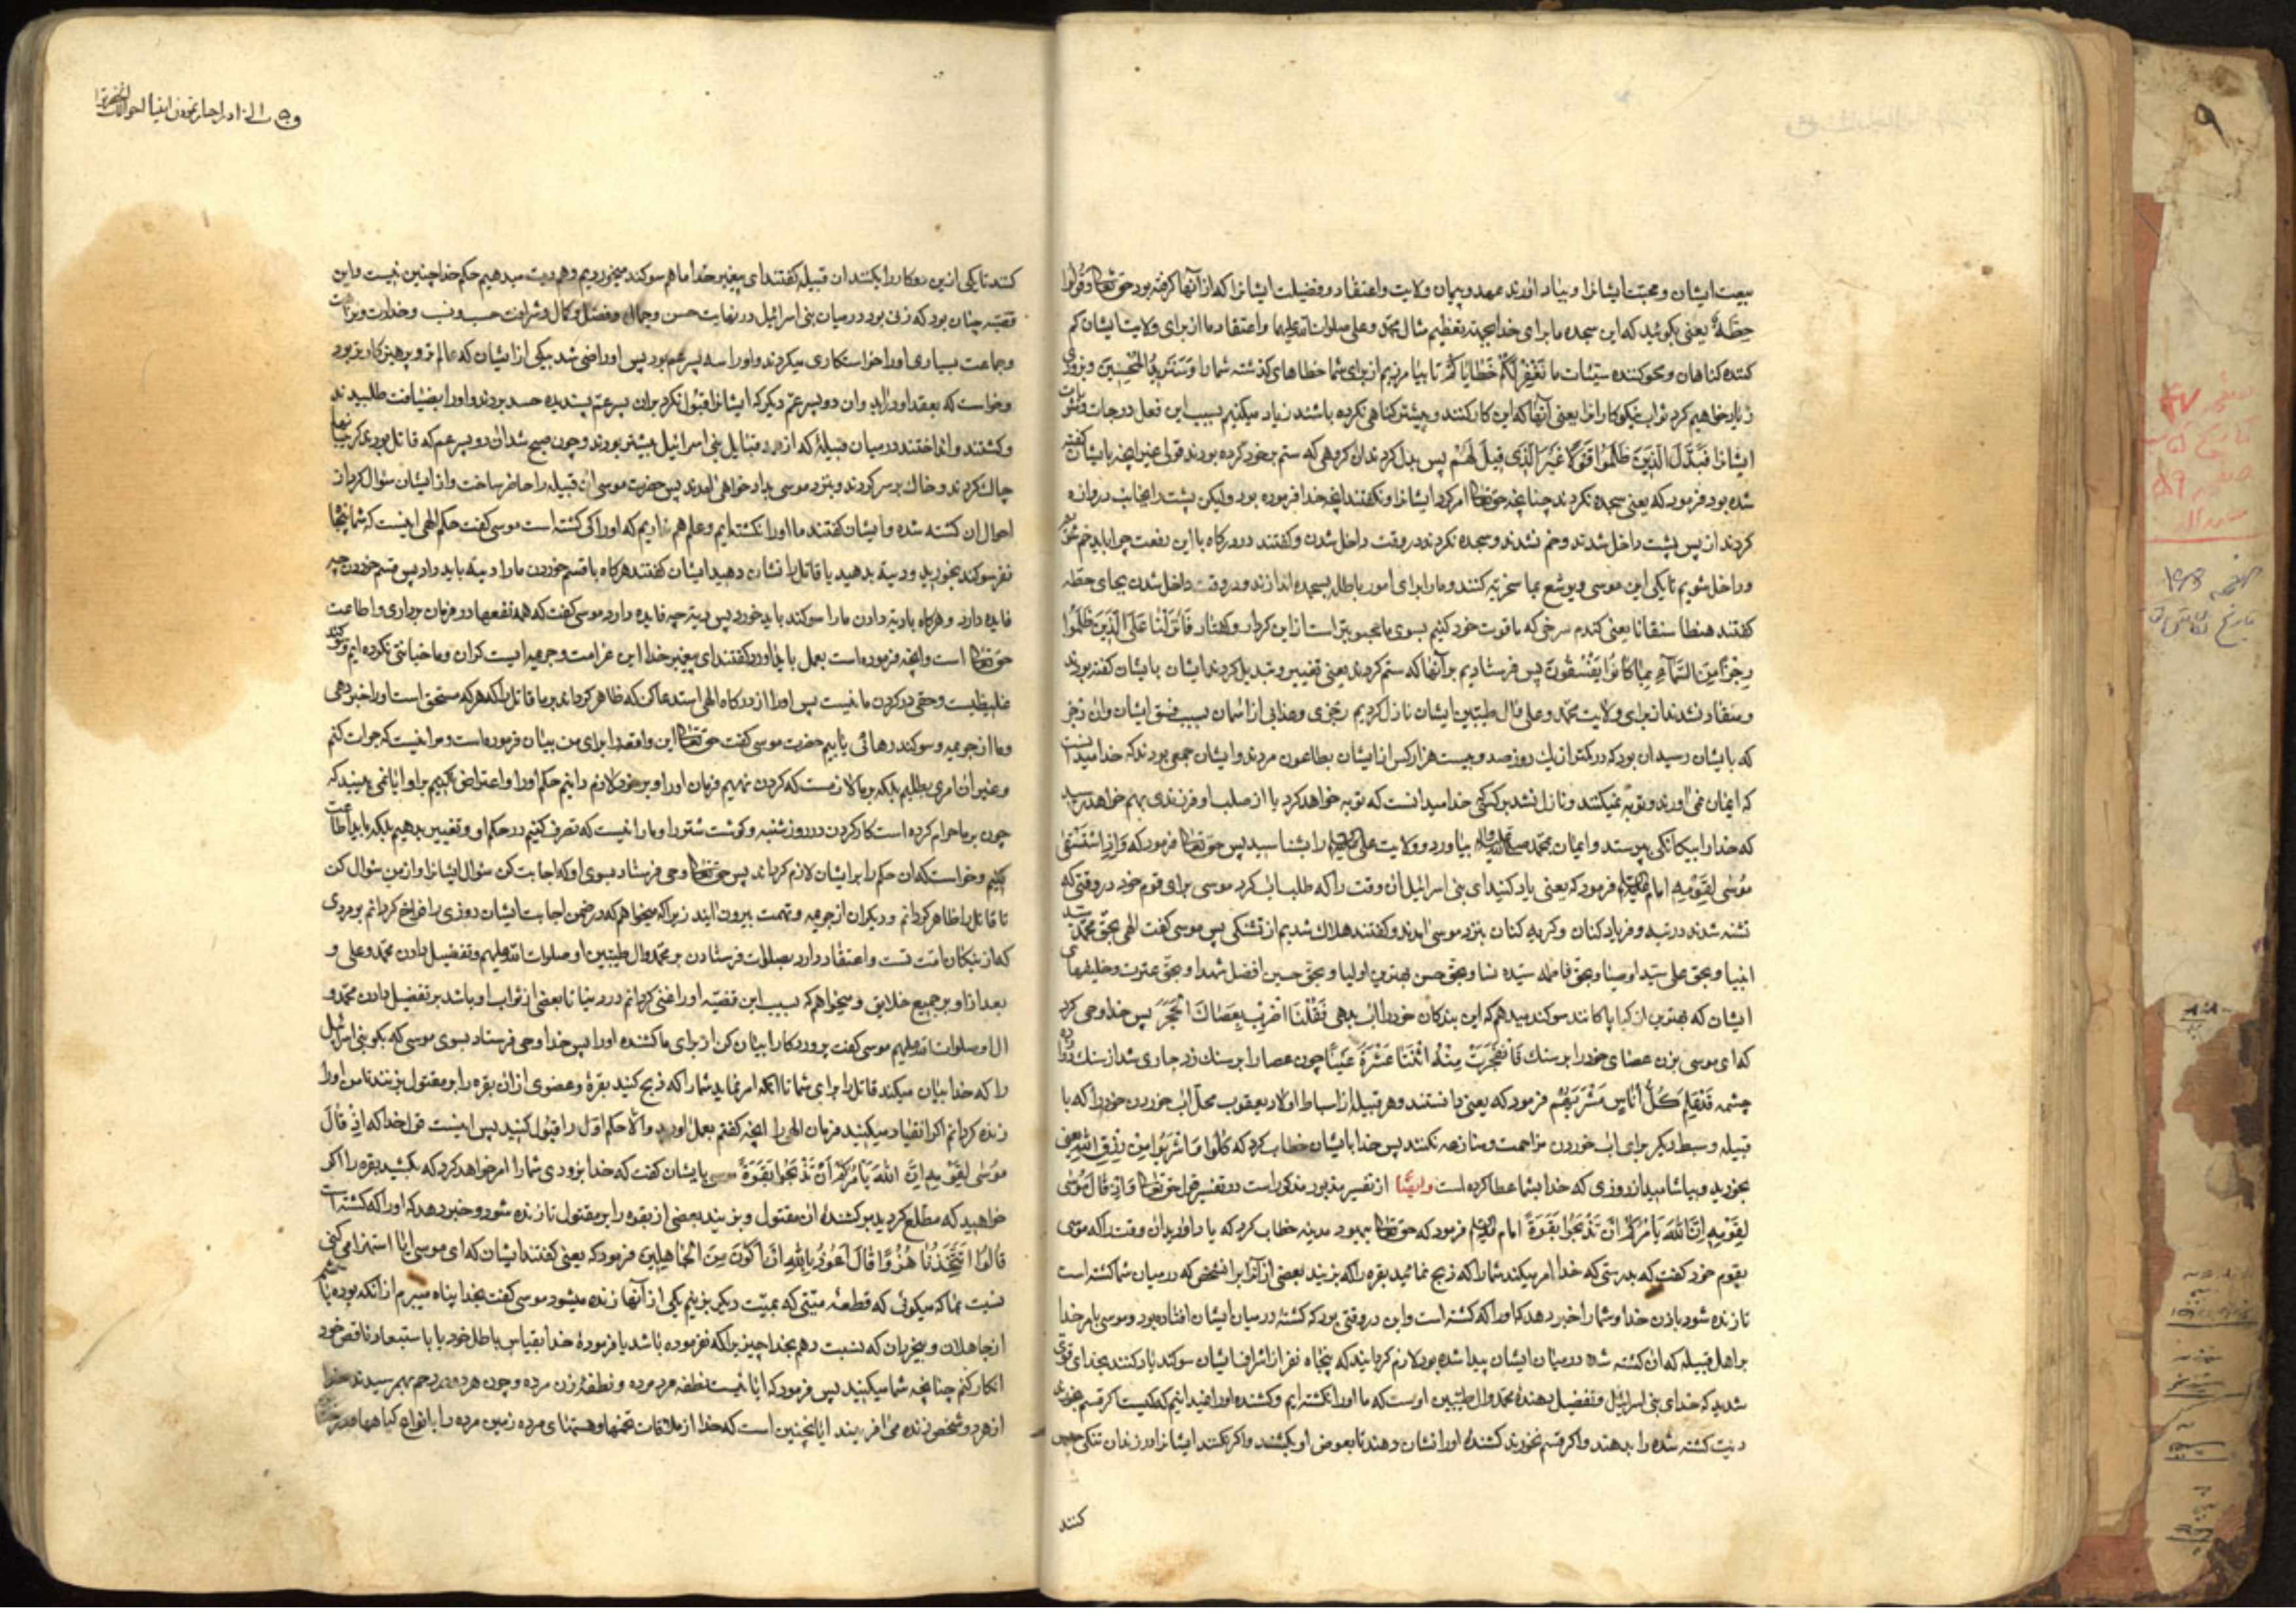 بیعت ایشان و محبت ایشانرا و بیاد اورند عهد و پیمان ولایت و اعتقاد و فضیلت ایشانرا که از آنها گرفته بود حق تعالی وَقُولُوا
حِطَّةٌ یعنی بکوئید که این سجده ما برای خدا بجهته تعظیم مثال محمد و علی صلوات الله علیهما و اعتقاد ما از برای ولایت ایشان کم
کننده کناهان و محو کننده سیئات ما نَغْفِرْ لَكُمْ خَطَايَاكُمْ تا بیامرزیم از برای شما خطاهای کذشته شما را وَسَنَزِيدُ الْمُحْسِنِينَ و بزودی
زیاد خواهیم کرد ثواب نیکوکارانرا یعنی آنها که این کار کنند و پیشتر کناهی نکرده باشند زیاد میکنیم بسبب این فعل درجات و مثوبات
ایشانرا فَبَدَّلَ الَّذِينَ ظَلَمُوا قَوْلًا غَيْرَ الَّذِي قِيلَ لَهُمْ پس بدل کردند ان کروهی که ستم بر خود کرده بودند قولی غیر انچه بایشان کفته
شده بود فرمود که یعنی سجده نکردند چنانچه حق تعالی امر کرد ایشانرا و نکفتند انچه خدا فرموده بود ولیکن پشت را بجانب دروازه
کردند از پس پشت داخل شدند و خم نشدند و سجده نکردند در وقت داخل شدن و کفتند در درکاه با این رفعت چرا باید خم شد
و داخل شویم تا یکی این موسی و یوشع بما سخریه کنند و ما را برای امور باطله بسجده اندازند و در وقت داخل شدن بجای حطه
کفتند هنطا سمقانا یعنی کندم سرخی که ما قوت خود کنیم بسوی ما محبوبتر است از این کردار و کفتار فَأَنْزَلْنَا عَلَى الَّذِينَ ظَلَمُوا
رِجْزًا مِنَ السَّمَاءِ بِمَا كَانُوا يَفْسُقُونَ پس فرستادیم بر آنها که ستم کردند یعنی تغییر و تبدیل کردند ایشان بایشان کفته بودند
و منقاد نشدند از برای ولایت محمد و علی و ال طیبین ایشان نازل کردیم رجزی و عذابی از اسمان بسبب فسق ایشان و ان رجز
که بایشان رسید ان بود که در کمتر از یك روز صد و بیست هزار کس از ایشان بطاعون مردند و ایشان جمعی بودند که خدا میدانست
که ایمان نمی اورند و توبه نمیکنند و نازل نشد بر کسی که خدا میدانست که توبه خواهد کرد یا از صلب او فرزندی بهم خواهد رسید
که خدا را بیکانکی بپرستد و ایمان بمحمد صلی الله علیه واله بیاورد و ولایت علی را بشناسد پس حق تعالی فرمود که وَإِذِ اسْتَسْقَى
مُوسَى لِقَوْمِهِ امام علیه السلام فرمود که یعنی یاد کنید ای بنی اسرائیل ان وقت را که طلب اب کرد موسی برای قوم خود در وقتی که
تشنه شدند در تیه و فریاد کنان و کریه کنان بنزد موسی امدند و کفتند هلاك شدیم از تشنکی پس موسی کفت الهی بحق محمد سید
انبیا و بحق علی سید اوصیا و بحق فاطمه سیده نسا و بحق حسن بهترین اولیا و بحق حسین افضل شهدا و بحق عترت و خلیفهای
ایشان که بهترین ازکیا و پاکانند سوکند میدهم که این بندکان خود را اب بدهی فَقُلْنَا اضْرِبْ بِعَصَاكَ الْحَجَرَ پس خدا وحی کرد
که ای موسی بزن عصای خود را بر سنك فَانْفَجَرَتْ مِنْهُ اثْنَتَا عَشْرَةَ عَيْنًا چون عصا را بر سنك زد جاری شد از سنك دوازده
چشمه قَدْ عَلِمَ كُلُّ أُنَاسٍ مَشْرَبَهُمْ فرمود که یعنی دانستند هر قبیله از اسباط اولاد یعقوب محل اب خوردن خود را که با
قبیله و سبط دیکر برای اب خوردن مزاحمت و منازعه نکنند پس خدا بایشان خطاب کرد که كُلُوا وَاشْرَبُوا مِنْ رِزْقِ اللَّهِ یعنی
بخورید و بیاشامید از روزی که خدا بشما عطا کرده است وایضًا از تفسیر مذبور مذکور است در تفسیر قول حق تعالی وَإِذْ قَالَ مُوسَى
لِقَوْمِهِ إِنَّ اللَّهَ يَأْمُرُكُمْ أَنْ تَذْبَحُوا بَقَرَةً امام علیه السلام فرمود که حق تعالی بیهود مدینه خطاب کرد که یاد اورید ان وقت را که موسی
بقوم خود کفت که بدرستی که خدا امر میکند شما را که ذبح نمائید بقره را که بزنید بعضی از آنرا بر انشخص که در میان شما کشته است
تا زنده شود باذن خدا و شما را خبر دهد که او را که کشته است و این در وقتی بود که کشته در میان ایشان افتاده بود و موسی بامر خدا
بر اهل قبیله که ان کشته شده در میان ایشان پیدا شده بود لازم کردانید که پنجاه نفر از اشراف ایشان سوکند یاد کنند بخدای قوی
شدید که خدای بنی اسرائیل و تفضیل دهندۀ محمد و ال طیبین اوست که ما او را نکشته ایم و کشنده او را نمیدانیم که کیست اکر قسم بخورند
دیت کشته شده را بدهند و اکر قسم نخورند کشندۀ او را نشان دهند تا بعوض او بکشند و اکر نکنند ایشانرا در زندان تنکی حبس
کنند
کنند تا یکی از این دو کار را بکنند ان قبیله کفتند ای پیغمبر خدا ما هم سوکند میخوریم و هم دیت میدهیم حکم خدا چنین نیست و این
قصه چنان بود که زنی بود در میان بنی اسرائیل در نهایت حسن و جمال و فضل و کمال و شرافت حسب و نسب و
و جماعت بسیاری او را خواستکاری میکردند و او را سه پسر عم بود پس او راضی شد بیکی از ایشان که عالم تر و پرهیزکارتر بود
و خواست که بعقد او دراید و ان دو پسر عم دیکر که ایشانرا قبول نکرد بران پسر عم پسندیده حسد بردند و او را بضیافت طلبیدند
و کشتند و انداختند در میان قبیلۀ که از همه قبایل بنی اسرائیل بیشتر بودند و چون صبح شد ان دو پسر عم که قاتل بودند کریبانها
چاك کردند و خاك بر سر کردند و بنزد موسی بداد خواهی امدند پس حضرت موسی ان قبیله را حاضر ساخت و از ایشان سؤال کرد از
احوال ان کشته شده و ایشان کفتند ما او را نکشته ایم و علم هم نداریم که او را کی کشته است موسی کفت حکم الهی اینست که شما پنجاه
نفر سوکند بخورید و دیة بدهید یا قاتل را نشان دهید ایشان کفتند هرکاه با قسم خوردن ما را دیة باید داد پس قسم خوردن چه
فایده دارد و هرکاه با دیة دادن ما را سوکند باید خورد پس دیة چه فایده دارد موسی کفت که همه نفعها در فرمان برداری و اطاعت
حق تعالی است و انچه فرموده است بعمل باید اورد کفتند ای پیغمبر خدا این غرامت و جریمه ایست کران و ما خیانتی نکرده ایم و سوکند
غلیظیست و حقی در کردن ما نیست پس او را از درکاه الهی استدعا کن که ظاهر کرداند بر ما قاتل را که هر که مستحق است او را خبر دهی
و ما از جریمه و سوکند رهائی یابیم حضرت موسی کفت حق تعالی این واقعه را برای من بیان فرموده است و مرا نیست که جرات کنم
و غیر ان امری بطلبم بلکه بر ما لازمست که کردن نهیم فرمان او را و بر خود لازم دانیم حکم او را و اعتراض نکنیم بر او ایا نمی بینید که
چون بر ما حرام کرده است کار کردن در روز شنبه و کوشت شتر را و ما را نیست که تصرف کنیم در حکم او و تغییر بدهیم بلکه باید اطاعت
بکنیم و خواست که ان حکم را بر ایشان لازم کرداند پس حق تعالی وحی فرستاد بسوی او که اجابت کن سؤال ایشانرا و از من سؤال کن
تا قاتل را ظاهر کردانم و دیکران از جریمه و تهمت بیرون ایند زیرا که میخواهم که در ضمن اجابت ایشان روزی را فراخ کردانم بر مردی
که از نیکان امت تست و اعتقاد دارد بصلوات فرستادن بر محمد و ال طیبین او صلوات الله علیهم و تفضیل دادن محمد و علی و
بعد از او بر جمیع خلایق و میخواهم که بسبب این قضیه او را غنی کردانم در دنیا تا بعضی از ثواب او باشد بر تفضیل دادن محمد و
ال او صلوات الله علیهم موسی کفت پروردکارا بیان کن از برای ما کشنده او را پس خدا وحی فرستاد بسوی موسی که بکو بنی اسرائیل
را که خدا بیان میکند قاتل را برای شما تا آنکه امر نماید شما را که ذبح کنید بقرۀ و عضوی از ان بقره را بر مقتول بزنید تا من او را
زنده کردانم اکر انقیاد میکنید فرمان الهی را انچه کفتم بعمل اورید و الا حکم اول را قبول کنید پس اینست قول خدا که إِذْ قَالَ
مُوسَى لِقَوْمِهِ إِنَّ اللَّهَ يَأْمُرُكُمْ أَنْ تَذْبَحُوا بَقَرَةً موسی بایشان کفت که خدا بزودی شما را امر خواهد کرد که بکشید بقره را اکر
خواهید که مطلع کردید بر کشندۀ ان مقتول و بزنید بعضی از بقره را بر مقتول تا زنده شود و خبر دهد که او را که کشته است
قَالُوا أَتَتَّخِذُنَا هُزُوًا قَالَ أَعُوذُ بِاللَّهِ أَنْ أَكُونَ مِنَ الْجَاهِلِينَ فرمود که یعنی کفتند ایشان که ای موسی ایا استهزا می کنی
نسبت بما که میکوئی که قطعۀ میتی که بمیت دیکر بزنیم یکی از آنها زنده میشود موسی کفت بخدا پناه میبرم از انکه بوده باشم
از جاهلان و بیخردان که نسبت دهم بخدا چیزیرا که نفرموده باشد یا فرمودۀ خدا بقیاس باطل خود یا باستبعاد ناقص خود
انکار کنم چنانچه شما میکنید پس فرمود که ایا نیست نطفه مرد مرده و نطفۀ زن مرده و چون هر دو در رحم بهم رسیدند خدا
از هر دو شخص زنده می افریند ایا نچنین است که خدا از ملاقات تخمها و هستهای مرده زمین مرده را بانواع کیاهها